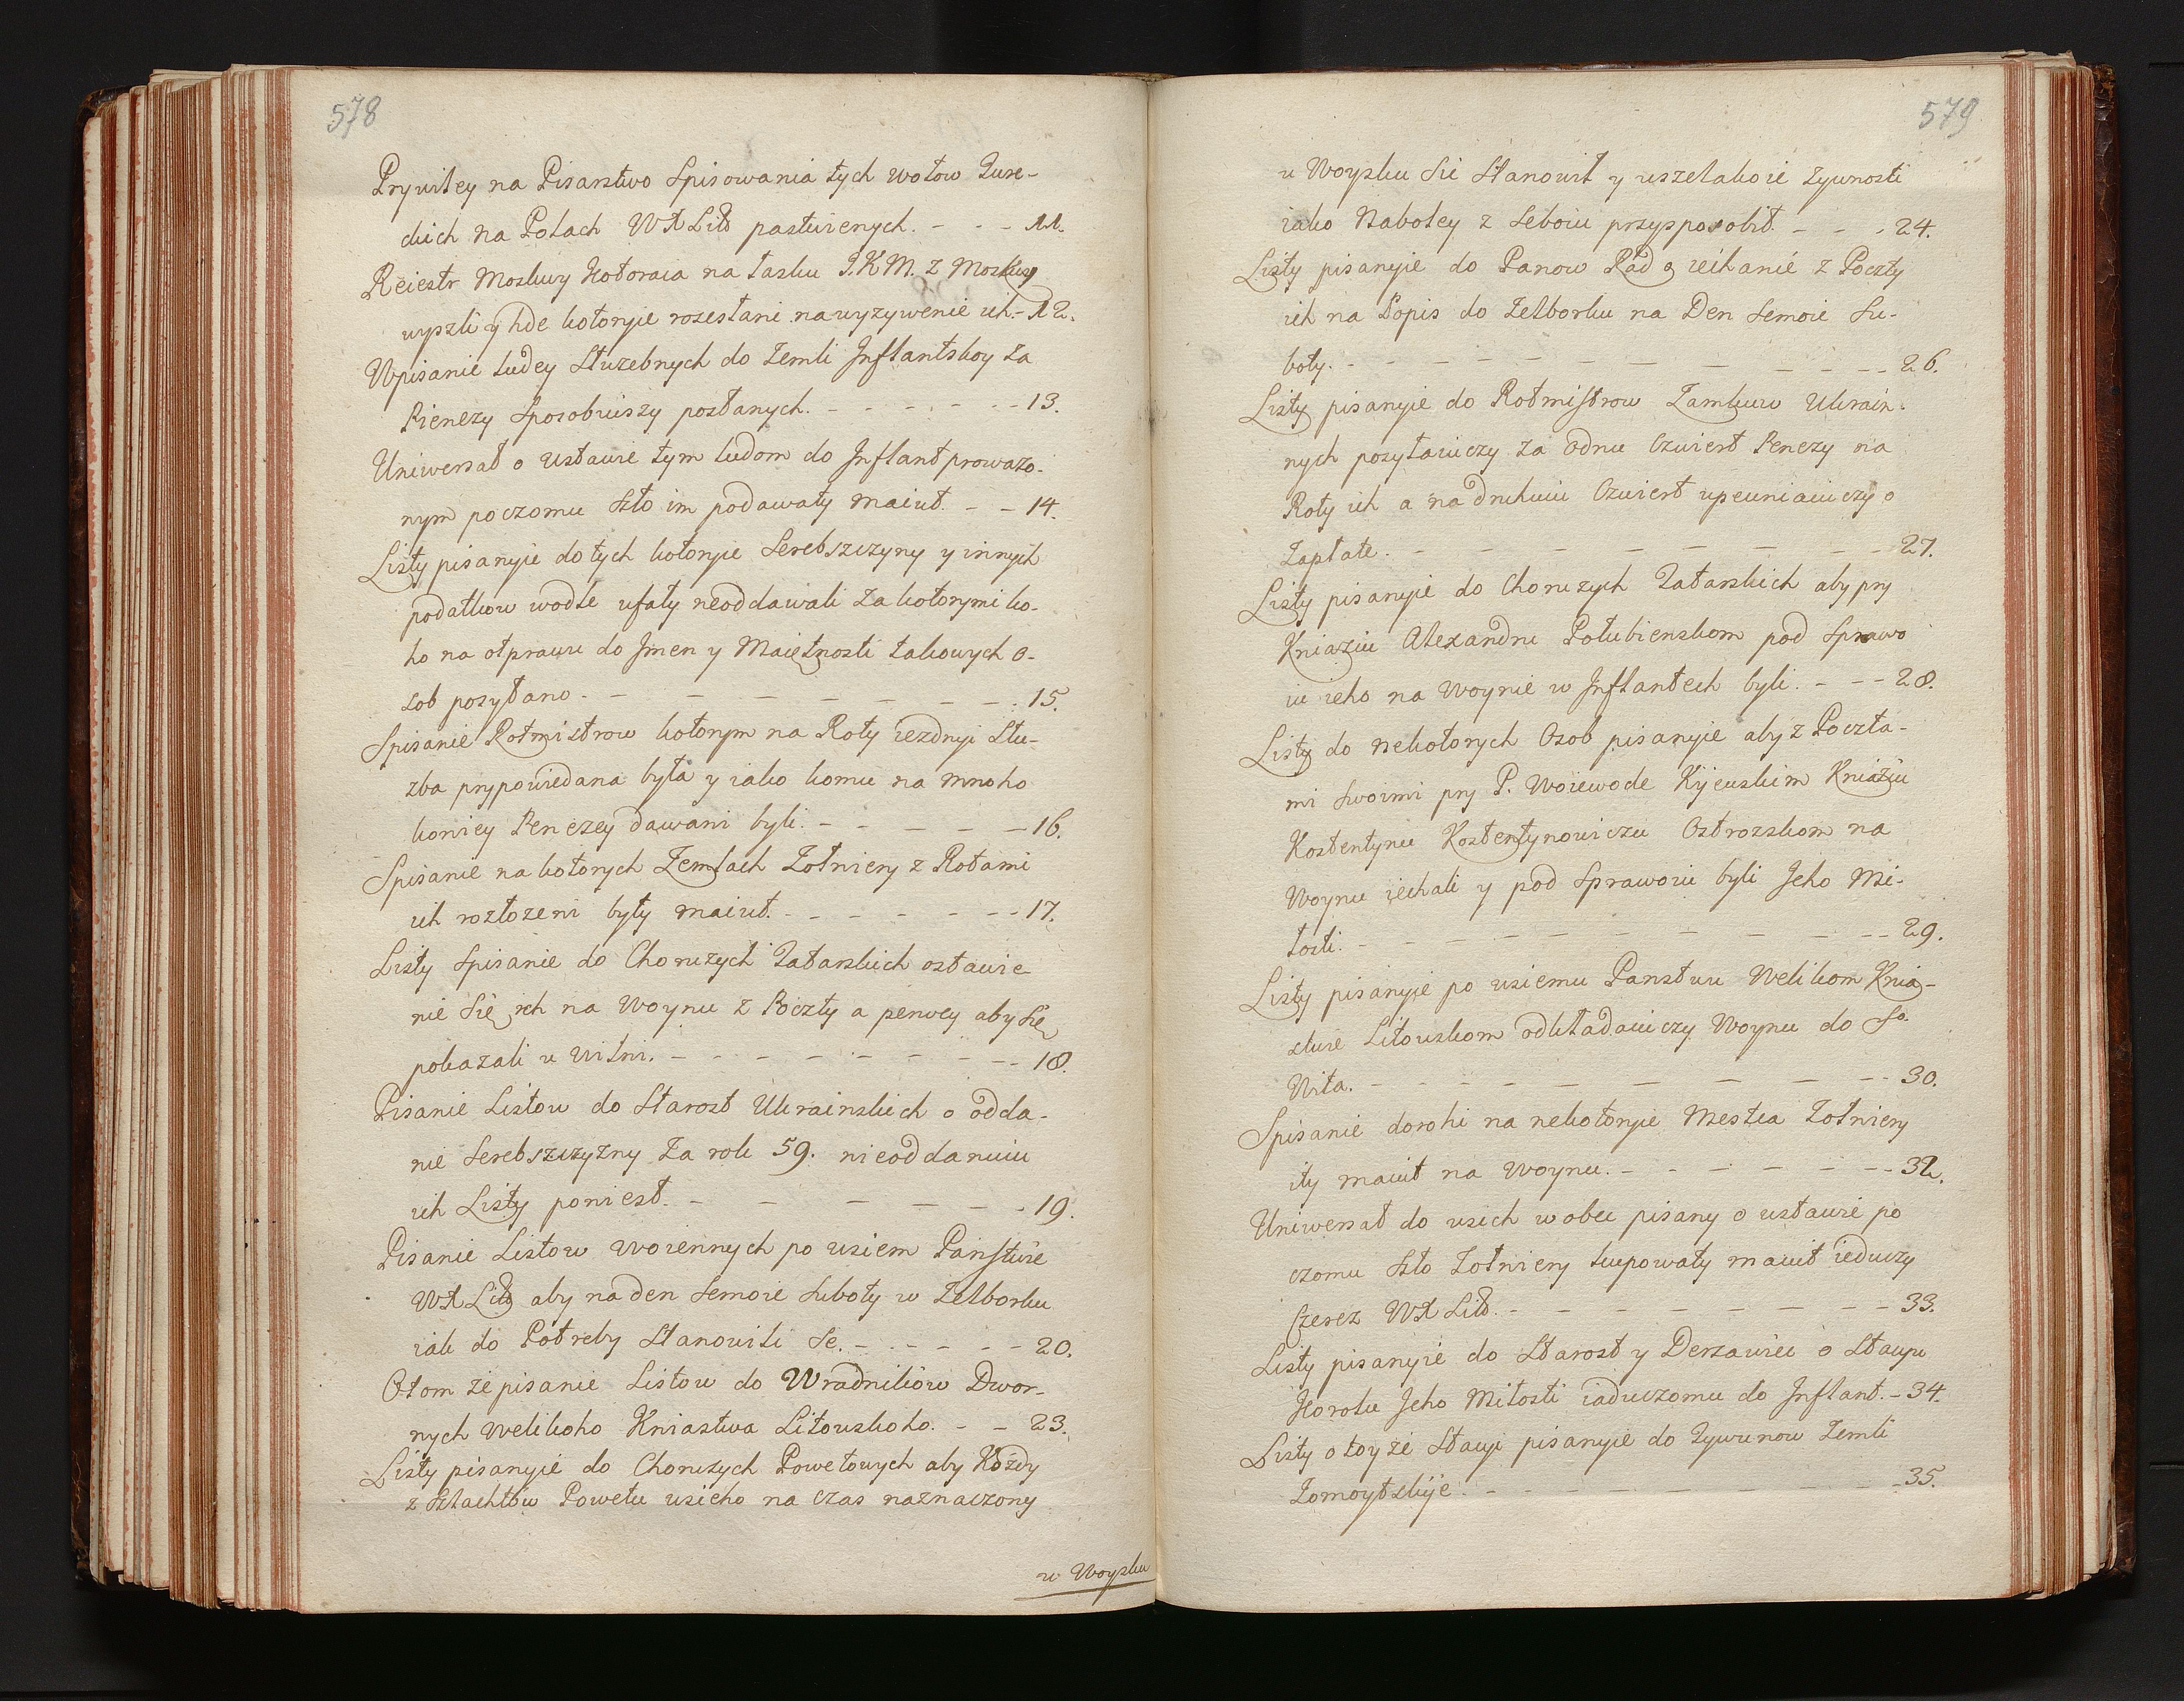 578
Prywiley na Pisarstwo Spisowania tych wołow Ture-
ckich na Polach WXLitt pastwienych. - - - 11.
Reiestr Moskwy Kotoraia na łasku J.K.M. z Moskwy
wyszli y hde kotoryie rozesłani na wyzywenie ich. - 12.
Wpisanie ludey Służebnych do Zemli Inflantskoy za
Pienezy Sposobiwszy posłanych. - - - - - - - 13.
Uniwersał o ustawie tym ludom do Inflant prowazo-
nym poczomu szto im podawaty maiut. - - 14.
Listy pisanyie do tych kotoryie Serebszczyny y innych
podatkow wodle ufały neoddawali za kotorymi ko-
ho na otprawu do Imen y Maietnosti takowych o-
sob posyłano - - - - - - - 15.
Spisanie Rotmistrow kotorym na Roty iezdnyi Słu-
zba prypowiedana była y iako komu na mnoho
koniey Penezey dawani byli. - - - - - - 16.
Spisanie na kotorych Zemlach Zołniery z Rotami
ich rozłozeni byty maiut. - - - - - - - 17.
Listy Spisanie do Choruzych Tatarskich ostawie
nie Sie ich na Woynu z Poczty a perwey aby Sie
pokazali u Wilni. - - - - - - - - - 18.
Pisanie Listow do Starost Ukrainskich o odda-
nie Serebszczyzny za rok 59. nieoddanuiu
ich Listy poniest. - - - - - - 19.
Pisanie Listow woiennych po wsiem Panstwie
WXLitt aby na den Semoie Suboty w Zelborku
iak do Potreby Stanowili Se. - - - - - - 20.
Otom ze pisanie Listow do Wradnikow Dwor-
nych Welikoho Kniastwa Litowskoho. - - 23.
Listy pisanyie do Choruzych Powetowych aby Kozdy
z Szlachtoiu Powetu wsieho na czas naznaczony
u Woysku
579
u Woysku Sie Stanowił y wszelakoie Zywnosti
iako Naboley z Seboiu przysposobił. - - - 24.
Listy pisanyie do Panow Rad o iechanie z Poczty
ich na Popis do Zelborku na Den Semoie Su-
boty. - - - - - - - - - - - 26.
Listy pisanyie do Rotmistrow Zamkuw Ukrain-
nych posyłaiuczy za odnu Czwiert Penezy na
Roty ich a na druhuiu Czwiert upewniaiuczy o
Zapłate. - - - - - - - - - 27.
Listy pisanyie do Choruzych Tatarskich aby pry
Kniaziu Alexandru Połubienskom pod Sprawo
iu ieho na Woynie w Inflantech byli. - - - 28.
Listy do nekotorych Osob pisanyie aby z Poczta-
mi Swoimi pry P. Woiewode Kijewskim Kniaziu
Kostentynu Kostentynowiczu Ostrozskom na
Woynu iechali y pod Sprawoiu byli Jeho Mi-
łosti. - - - - - - - - - - 29.
Listy pisanyie po wsiemu Panstwu Welikom Knia-
stwie Litowskom odkładaiuczy Woynu do So.
Wita. - - - - - - - - - - 30.
Spisanie dorohi na nekotoryie Mestca Zołniery
ity maiut na Woynu. - - - - - - - 32.
Uniwersał do wsich wobec pisany o ustawie po
czomu szto Zołniery kupowaty maiut ieduczy
Czerez WXLitt. - - - - - - - - - 33.
Listy pisanyie do Starost y Derzawiec o Stacyu
Korolu Jeho Miłosti iaduczomu do Inflant. - 34.
Listy o toy ze Stacyi pisanyie do Tywunow Zemli
Zomoytskiye. - - - - - - - - - 35.